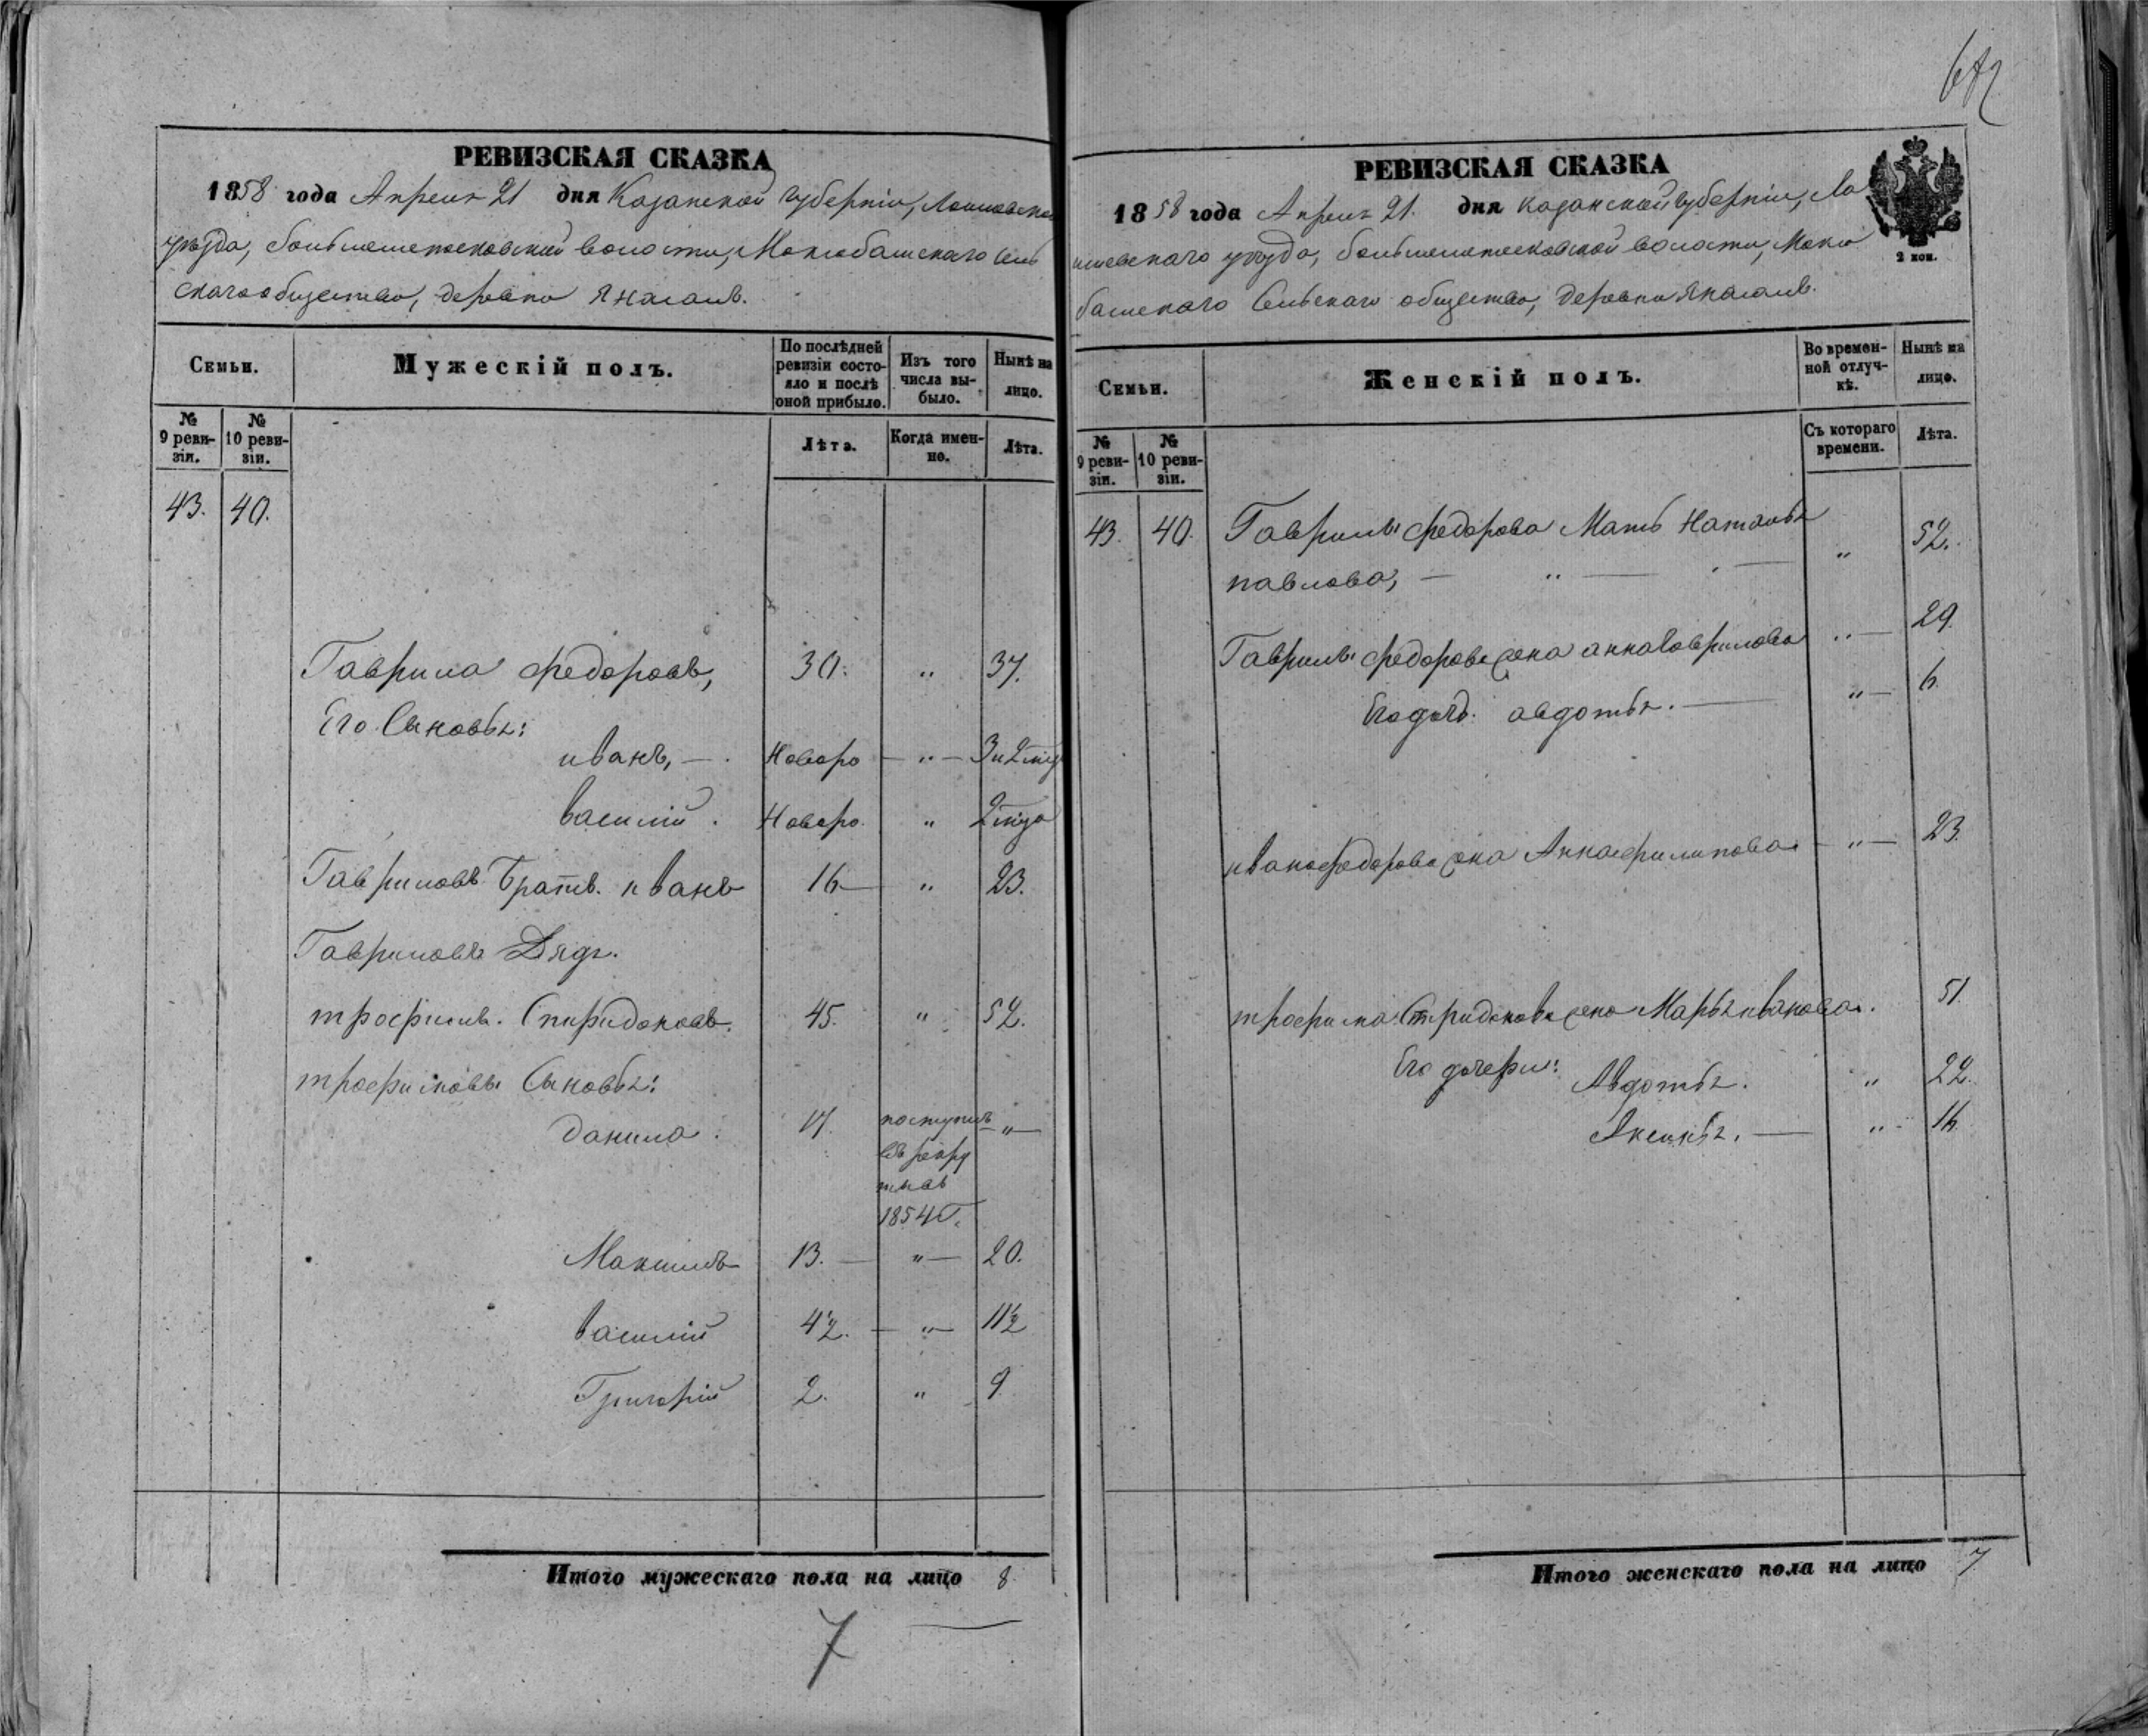 РЕВИЗСКАЯ СКАЗКА
1858 года Апреля 21 дня Казанской губернiи, Лаишевскаго
уѣзда, большемешеской волости, Моклобашскаго сель
скаго общества, деревни Янасалъ.
Семьи.
Мужескій полъ.
По послѣдней ревизіи состояло и послѣ оной прибыло.
Изъ того числа выбыло.
Нынѣ на лицо.
№ 9 ревизіи.
№ 10 ревизіи.
Лѣта.
Когда именно.
Лѣта.
43. 40.
Гаврила Федоровъ, 30. " 37.
Его Сыновья:
иванъ, — Новоро — " — 3 и 2 нед
василій. Новоро. "
Гавриловъ Братъ иванъ 16 — " 23.
Гавриловъ Дядя.
трофимъ Спиридоновъ. 45. " 52.
трофимовы Сыновья:
данила. 17. поступилъ — " —
въ рекру
ты въ
1854 г.
Максимъ 13. — " — 20.
василій 4½. — " — 11½
Григорій 2. " 9
Итого мужескаго пола на лицо 8.
7
РЕВИЗСКАЯ СКАЗКА
1858 года Апреля 21. дня казанской губерніи, Ла
ишевскаго уѣзда, волости, Мокло
башскаго Сельскаго общества, деревни Янасалъ.
2 коп.
Семьи.
Женскій полъ.
Во временной отлучкѣ.
Нынѣ на лицо.
№ 9 ревизіи.
№ 10 ревизіи.
Съ котораго времени.
Лѣта.
43. 40. Гаврилы федорова Мать Наталья
павлова, — " — " 52.
Гаврилы федорова жена анна Гаврилова " — 29.
Его дочь авдотья. — " — 6.
ивана федорова жена Анна филипова — " — 23.
трофима Спиридонова жена Марья иванова. 51.
Его дочери: Авдотья. " 22.
Аксинья. — " 16.
Итого женскаго пола на лицо 7